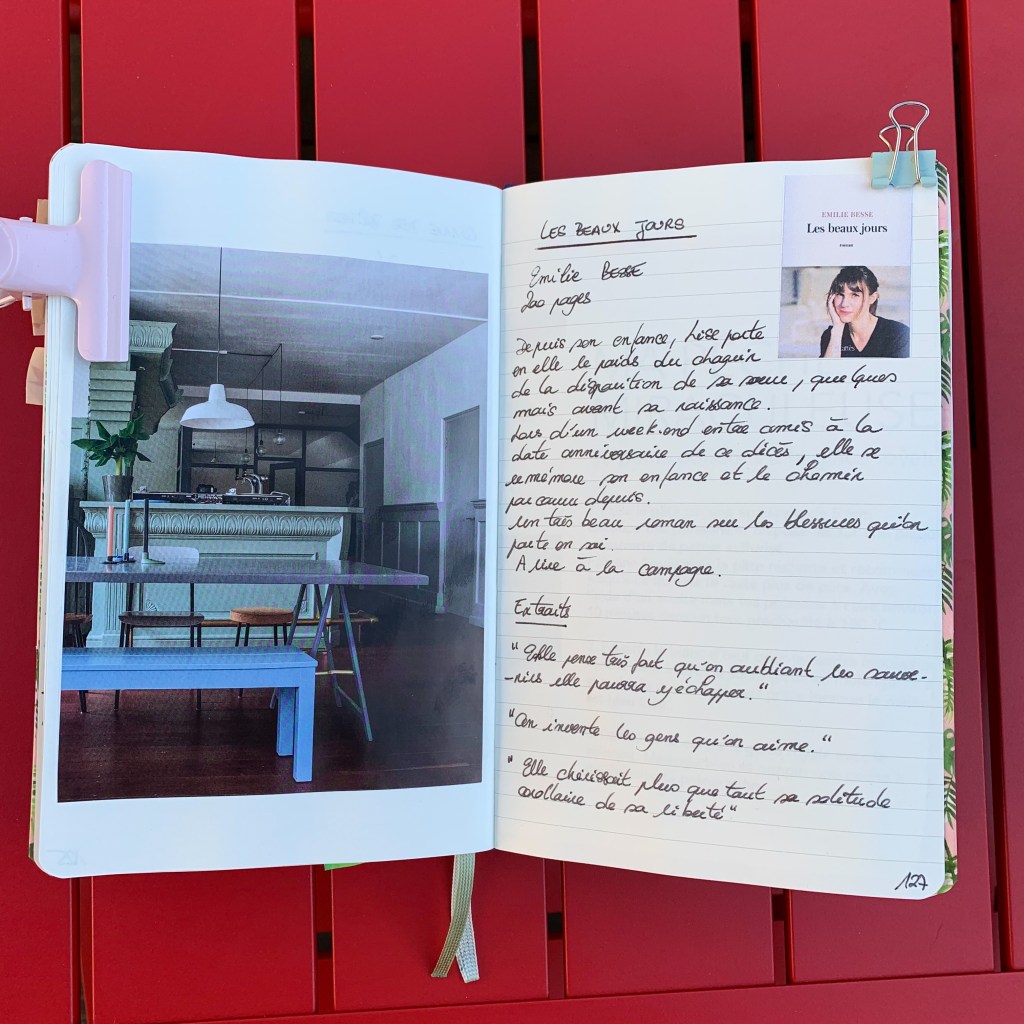 LES BEAUX JOURS
EMILIE BESSE
Les beaux jours
ROMAN
Emilie BESSE
200 pages
Depuis son enfance, Lise porte
en elle le poids du chagrin
de la disparition de sa sœur, quelques
mois avant sa naissance.
Lors d'un week-end entre amis à la
date anniversaire de ce décès, elle se
remémore son enfance et le chemin
parcouru depuis.
Un très beau roman sur les blessures qu'on
porte en soi.
A lire à la campagne.
Extraits
"Elle pense très fort qu'en oubliant les souve-
-nirs elle pourra y échapper."
"On invente les gens qu'on aime."
"Elle chérissait plus que tout sa solitude
corollaire de sa liberté"
127